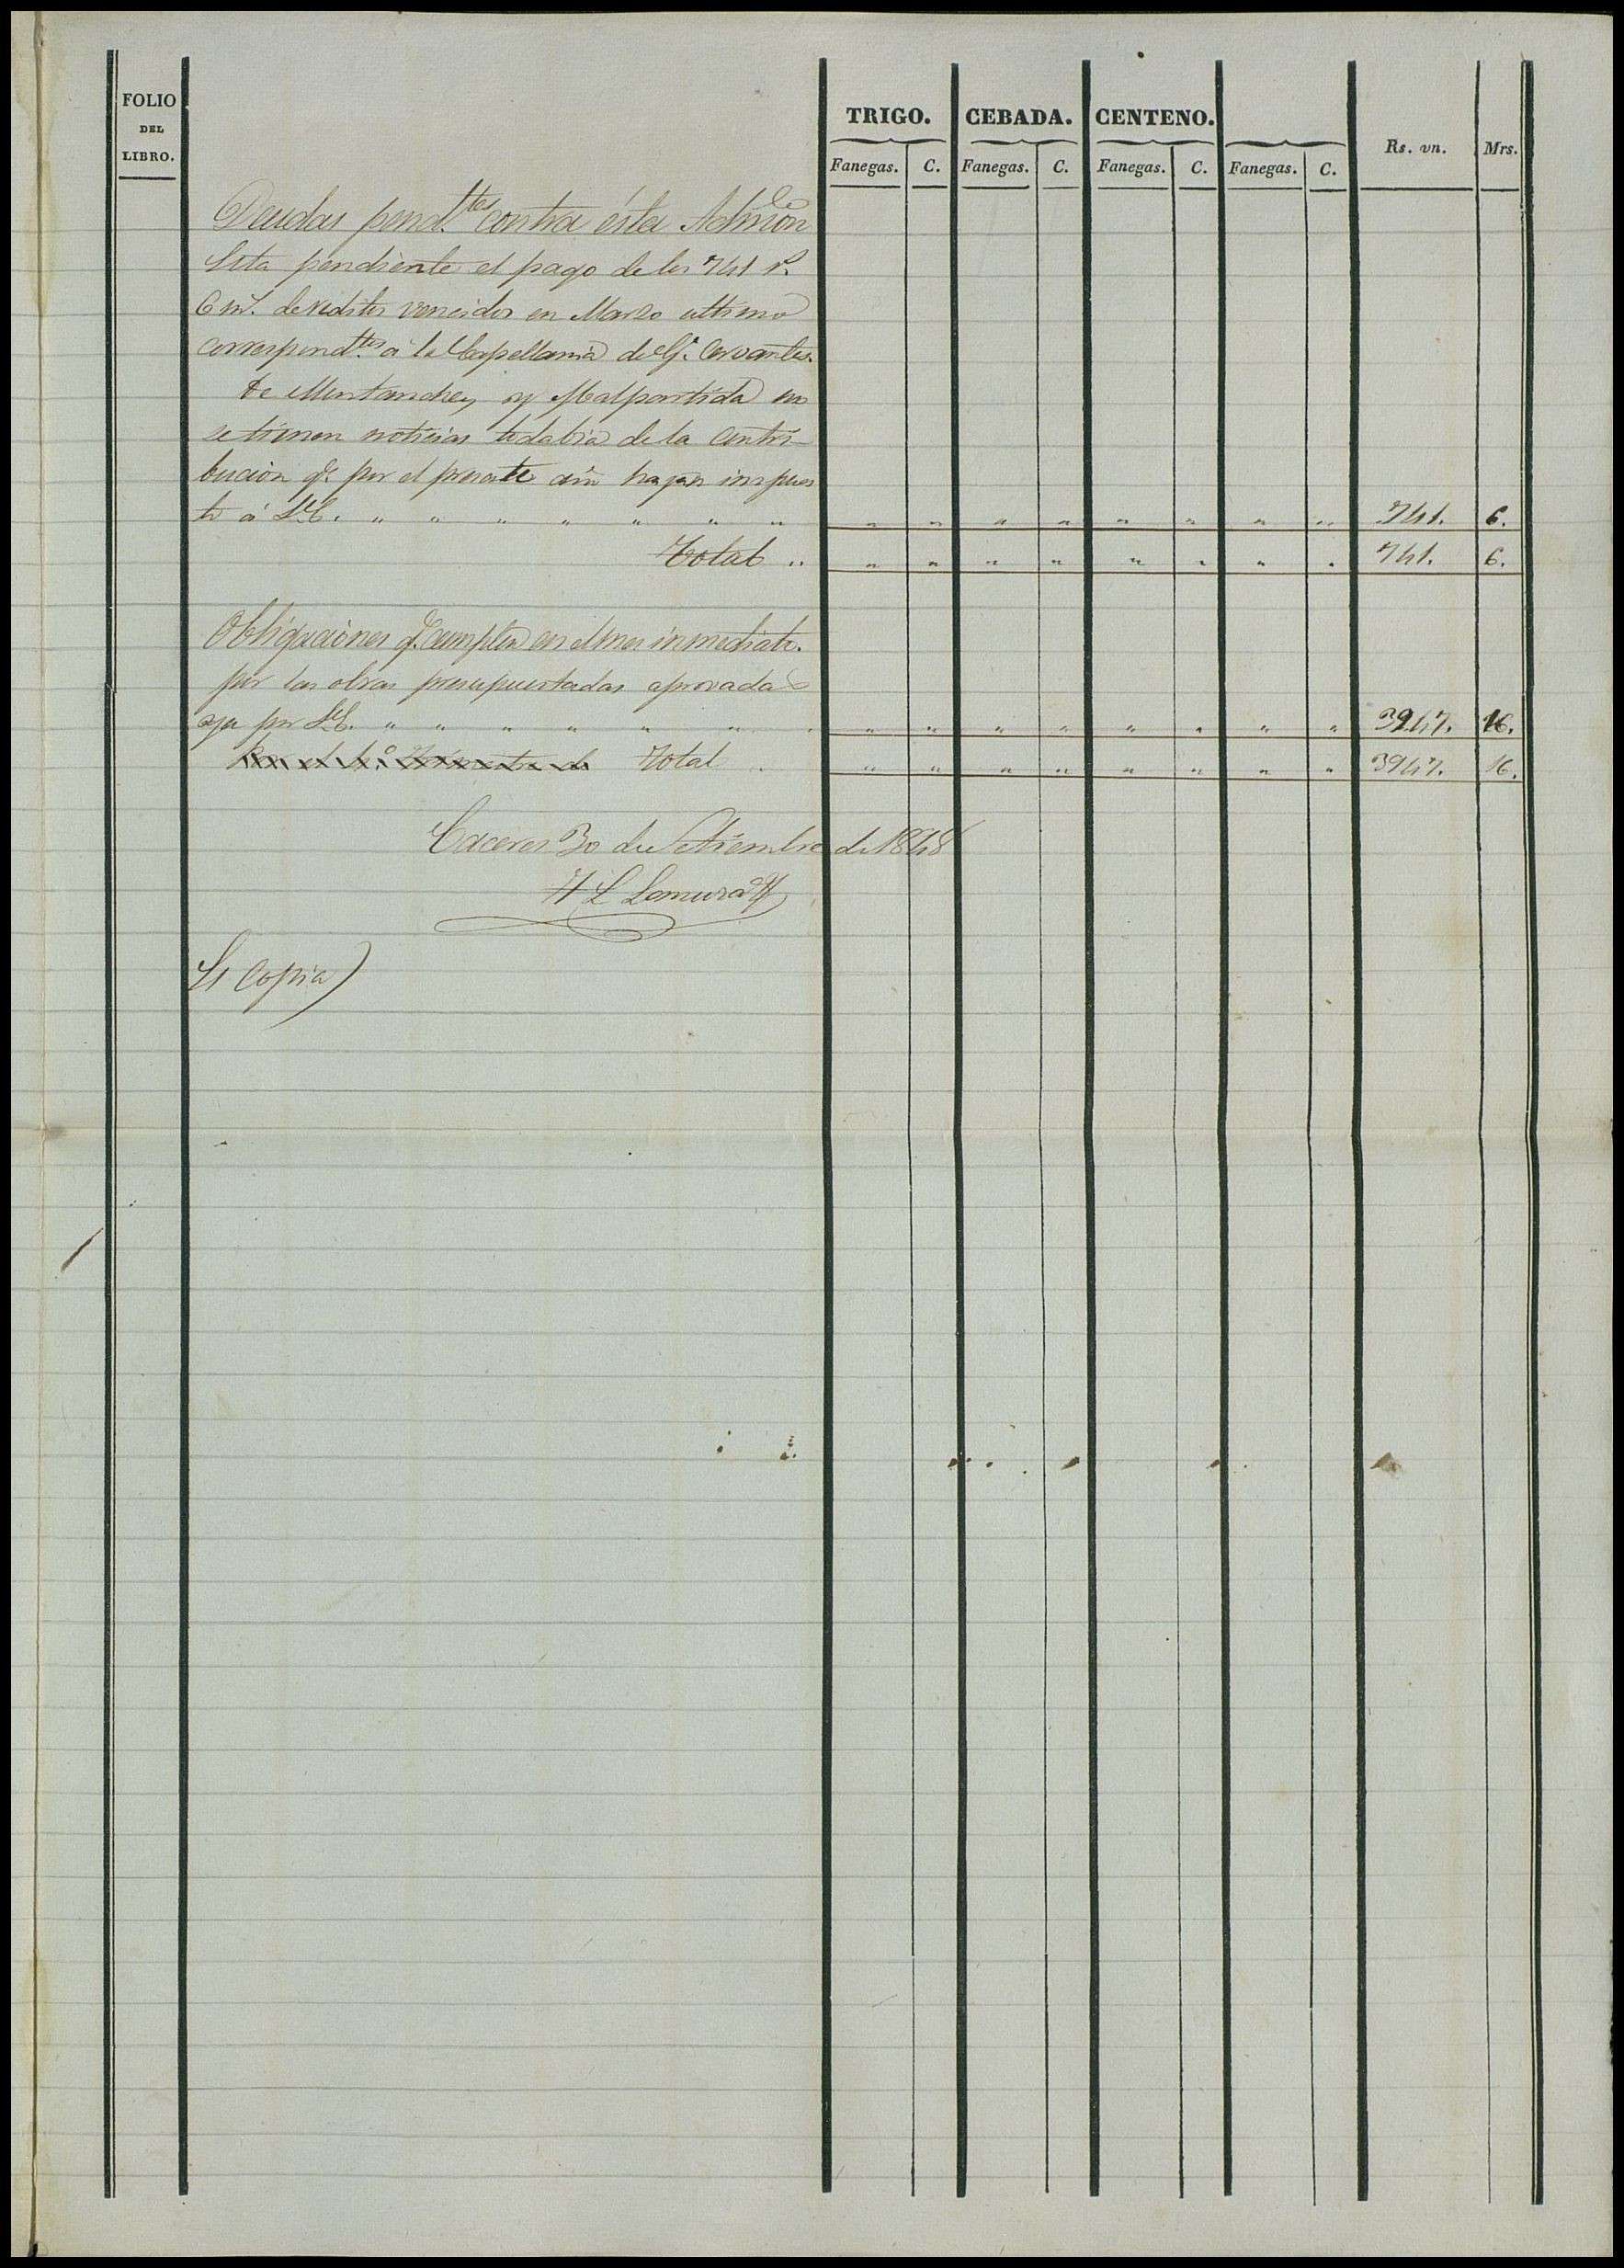 FOLIO
DEL
LIBRO.
TRIGO. CEBADA. CENTENO.
Fanegas. C. Fanegas. C. Fanegas. C. Fanegas. C. Rs. vn. Mrs.
Deudas pend.tes contra ésta Admion
Esta pendiente el pago de los 741 r.s
6 m.s de reditos vencidos en Marzo ultimo
correspond.tes á la Capellania de G.a Cervantes.
De Montanchez y Malpartida no
se tienen noticias todabia de la Contri-
bucion q.e por el presente año hayan impues
to á S.E. " " " " " " " " " " " " " " " 741. 6.
Total .. " " " " " " " " 741. 6.
Obligaciones q.e cumplen en el mes inmediato.
por las obras presupuestadas aprovadas
ya por S.E. " " " " " " " " " " " " " " 3947. 16.
Total .. " " " " " " " " 3947. 16.
Caceres 30 de Setiembre de 1848
Es Copia